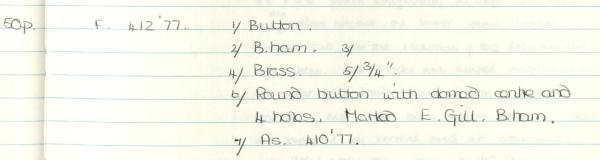 50p. F. 412'77. 1/ Button.
2/ B.ham. 3/
4/ Brass 5/ 3/4".
6/ Round button with domed centre and
4 holes. Marked E. Gill. B.ham.
7/ As. 410'77.